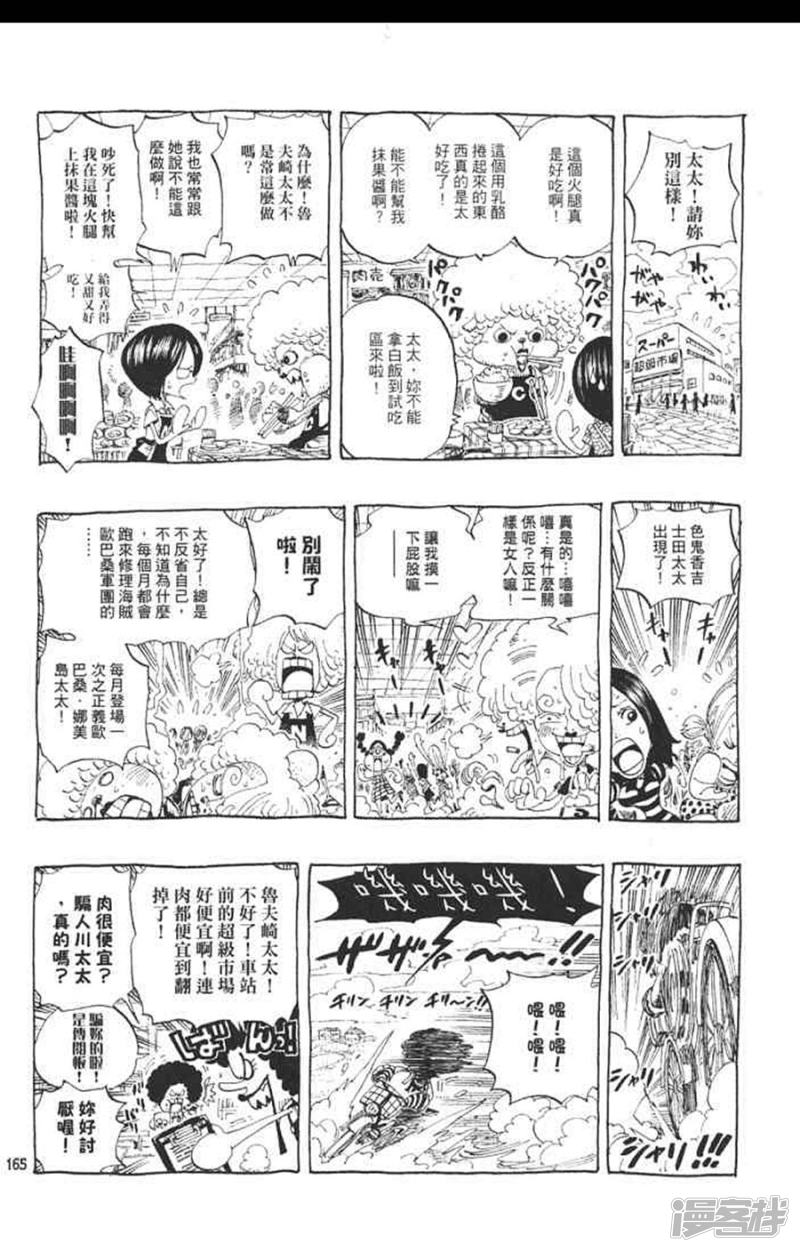 太太！請妳
別這樣！
わい
わい
ガヤ
ガヤ
スーパー
超級市場
這個火腿真
是好吃啊！
這個用乳酪
捲起來的東
西真的是太
好吃了！
能不能幫我
抹果醬啊？
肉売
パクパク
パクパク
太太，妳不能
拿白飯到試吃
區來啦！
C
為什麼！魯
夫崎太太不
是常這麼做
嗎？
我也常常跟
她說不能這
麼做啊！
吵死了！快幫
我在這塊火腿
上抹果醬啦！
給我弄得
又甜又好
吃！
哇啊啊啊啊！
色鬼香吉
士田太太
出現了！
きゃー
真是的…嘻嘻
嘻…有什麼關
係呢？反正一
樣是女人嘛！
讓我摸一
下屁股嘛
——
きゃー
きゃー
別鬧了
啦！
太好了！總是
不反省自己，
不知道為什麼
，每個月都會
跑來修理海賊
歐巴桑軍團的
……
N
每月登場一
次之正義歐
巴桑．娜美
島太太！
シャリ
シャリ!!
嘰嘰嘰！
ザザザー〜〜!!
チリン チリン チリ〜ン!!
喂！喂！
喂！喂！
魯夫崎太太！
不好了！車站
前的超級市場
好便宜啊！連
肉都便宜到翻
掉了！
しばんっ!
肉很便宜？
騙人川太太
，真的嗎？
騙妳的啦！
是傳閱板！
妳好討
厭喔！
165
漫客栈